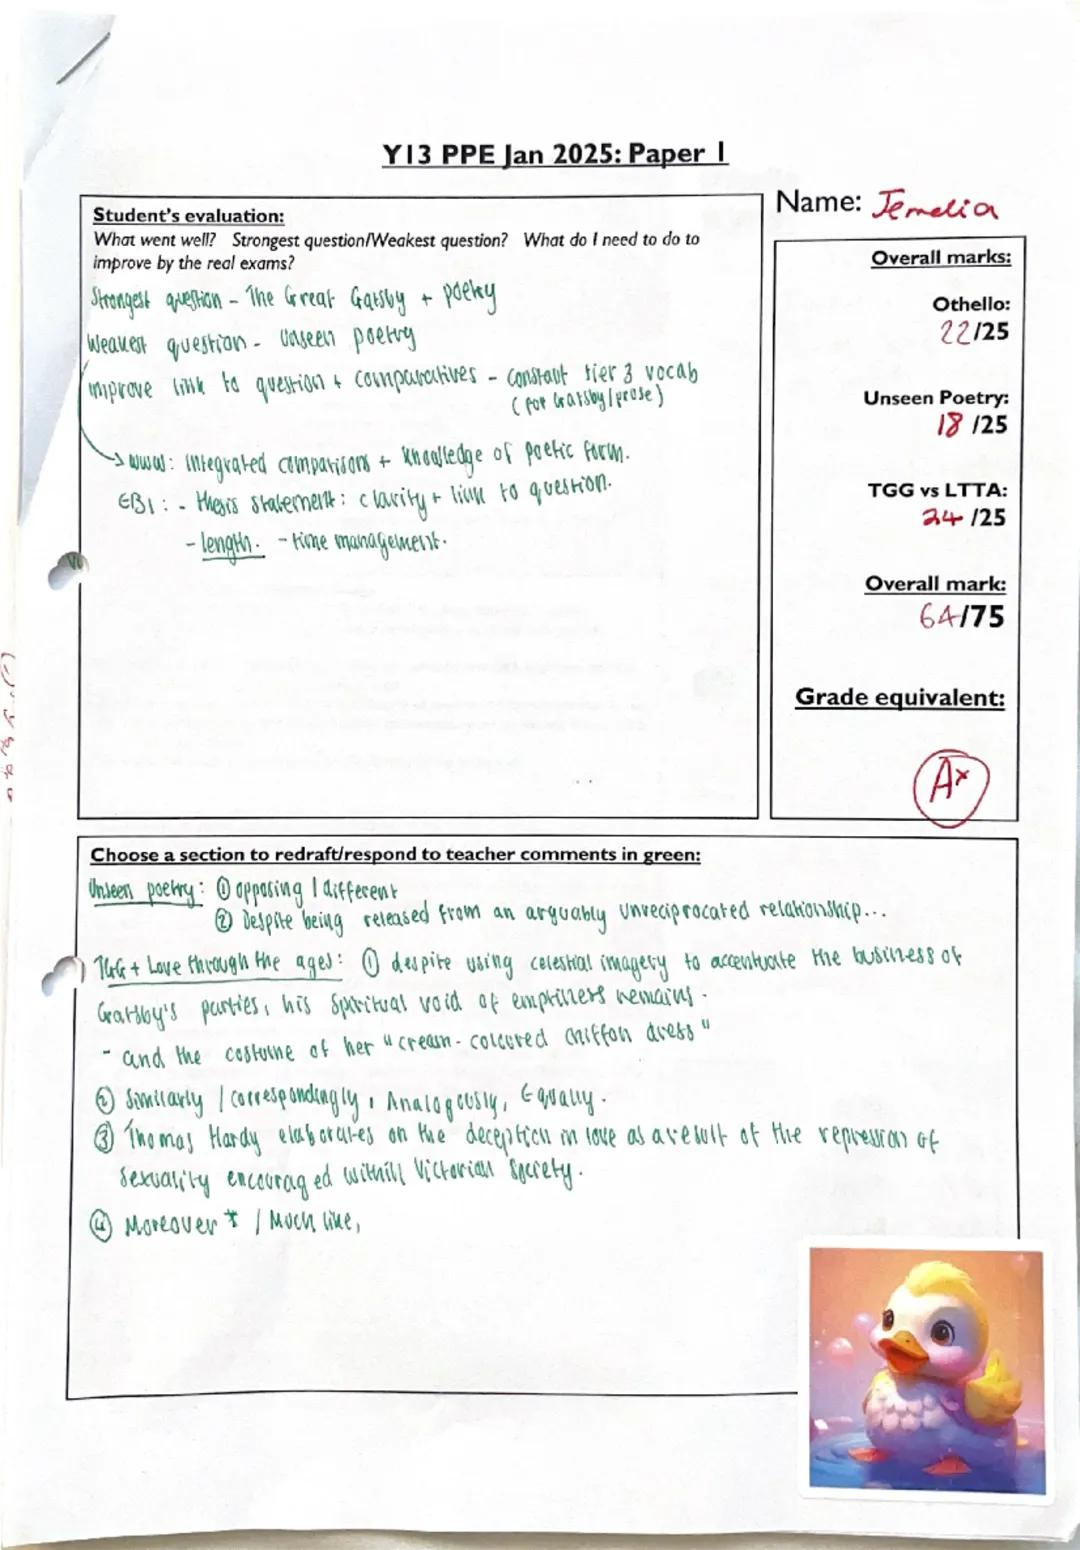 Y13 PPE Jan 2025: Paper 1
Name: Jemelia
Student's evaluation:
What went well? Strongest question/Weakest question? What do I need to do to
improve by the real exams?
Strongest question - The Great Gatsby + poetry
Weakest question - Unseen poetry
improve link to question + comparatives - constant tier 3 vocab
(for Gatsby/prose)
www: integrated comparisons + knowledge of poetic form.
EBI: - thesis statement: clarity + link to question.
- length. - time management.
Overall marks:
Othello:
22/25
Unseen Poetry:
18/25
TGG vs LTTA:
24/25
Overall mark:
64/75
Grade equivalent:
A*
Choose a section to redraft/respond to teacher comments in green:
Unseen poetry: ① opposing / different
② Despite being released from an arguably unreciprocated relationship...
TGG + Love through the ages: ① despite using celestial imagery to accentuate the business of
Gatsby's parties, his spiritual void of emptiness remains.
- and the costume of her "cream-coloured chiffon dress"
② Similarly / correspondingly, Analogously, Equally.
③ Thomas Hardy elaborates on the deception in love as a result of the repression of
sexuality encouraged within Victorian Society.
④ Moreover * / Much like,